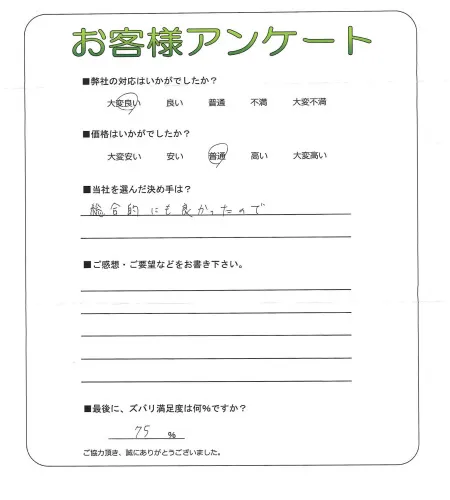 お客様アンケート
■弊社の対応はいかがでしたか？
大変良い 良い 普通 不満 大変不満
■価格はいかがでしたか？
大変安い 安い 普通 高い 大変高い
■当社を選んだ決め手は？
総合的にも良かったので
■ご感想・ご要望などをお書き下さい。
■最後に、ズバリ満足度は何%ですか？
75 %
ご協力頂き、誠にありがとうございました。